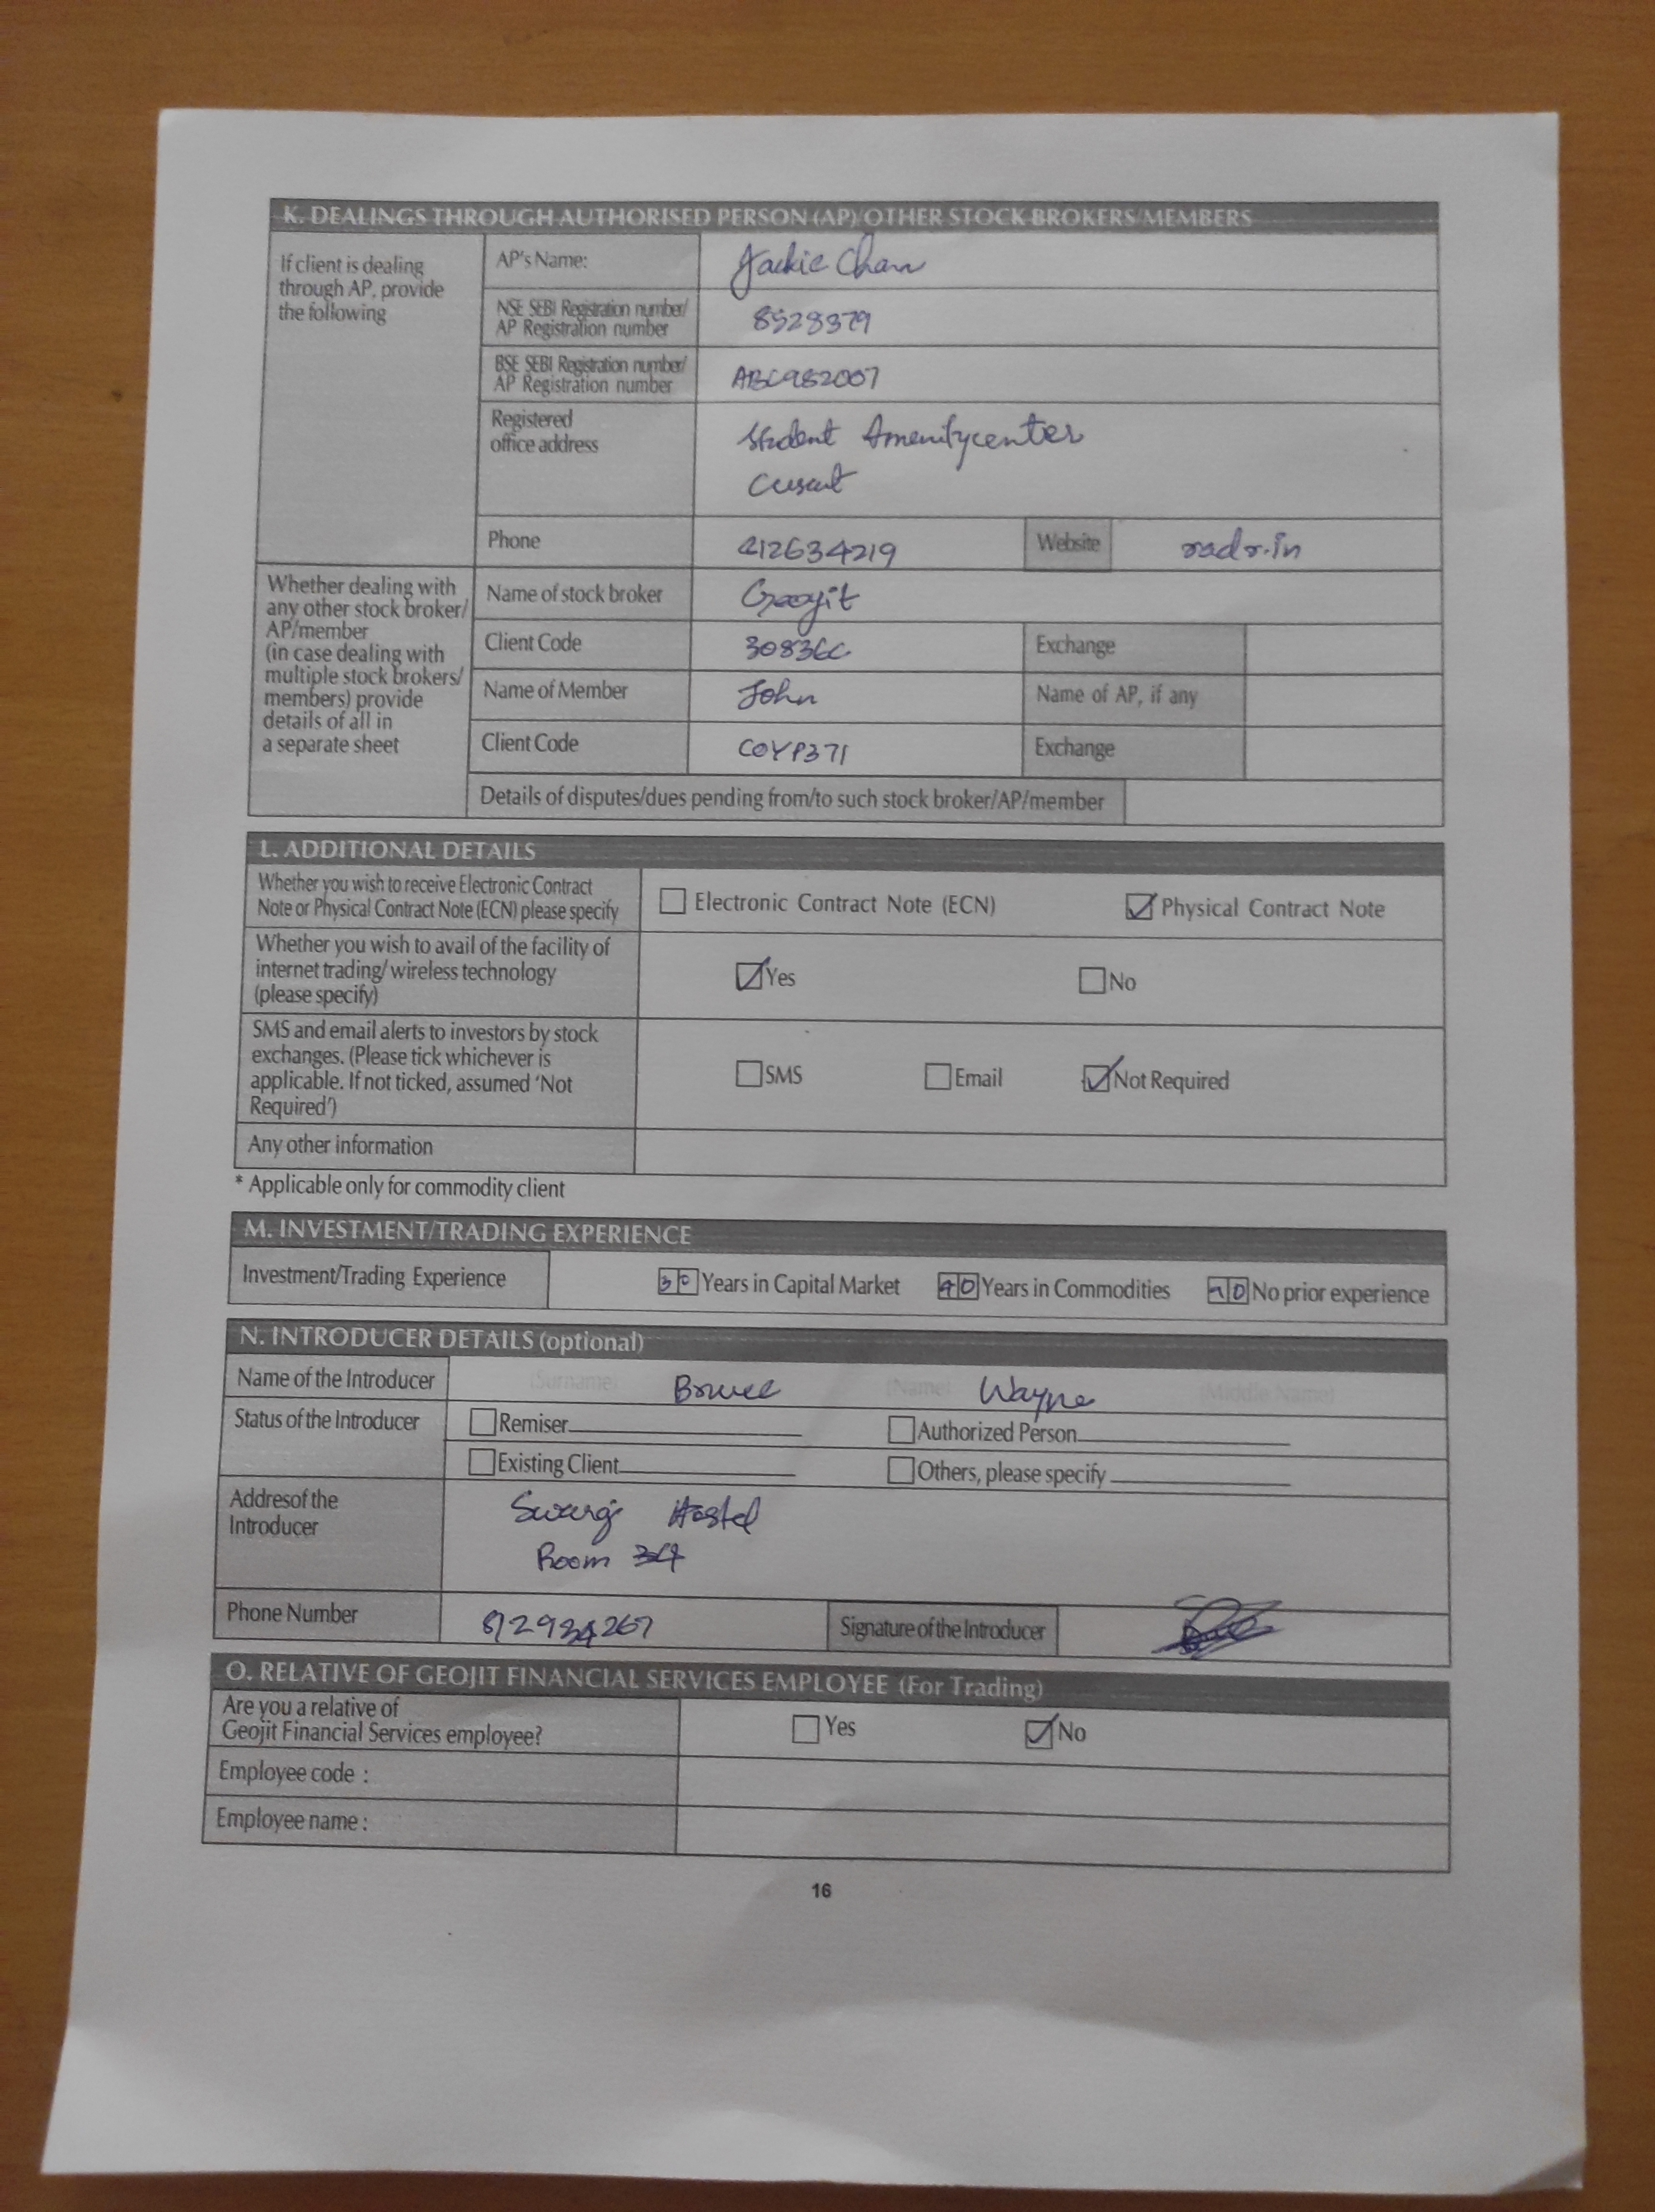 K. DEALINGS THROUGH AUTHORISED PERSON (AP)/OTHER STOCK BROKERS/MEMBERS
If client is dealing
through AP, provide
the following
AP's Name: Jackie Chan
NSE SEBI Registration number/
AP Registration number 8528379
BSE SEBI Registration number/
AP Registration number ABC982007
Registered
office address Student Amenitycenter
Cusat
Phone 412634219 Website radr.in
Whether dealing with
any other stock broker/
AP/member
(in case dealing with
multiple stock brokers/
members) provide
details of all in
a separate sheet
Name of stock broker
Client Code 30836C Exchange
Name of Member John Name of AP, if any
Client Code COYP371 Exchange
Details of disputes/dues pending from/to such stock broker/AP/member
L. ADDITIONAL DETAILS
Whether you wish to receive Electronic Contract
Note or Physical Contract Note (ECN) please specify
Electronic Contract Note (ECN) Physical Contract Note
Whether you wish to avail of the facility of
internet trading/wireless technology
(please specify)
Yes No
SMS and email alerts to investors by stock
exchanges. (Please tick whichever is
applicable. If not ticked, assumed ‘Not
Required’)
SMS Email Not Required
Any other information
* Applicable only for commodity client
M. INVESTMENT/TRADING EXPERIENCE
Investment/Trading Experience 30 Years in Capital Market 40 Years in Commodities No prior experience
N. INTRODUCER DETAILS (optional)
Name of the Introducer (Surname) Bruce (Name) Wayne (Middle Name)
Status of the Introducer Remiser Authorized Person
Existing Client Others, please specify
Addresof the
Introducer
Hostel
Room 34
Phone Number Signature of the Introducer
O. RELATIVE OF GEOJIT FINANCIAL SERVICES EMPLOYEE (For Trading)
Are you a relative of
Geojit Financial Services employee?
Yes No
Employee code :
Employee name :
16